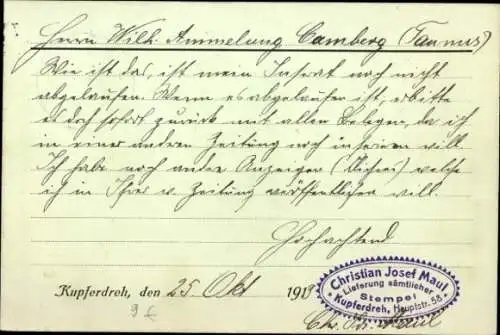 Herrn Wilh. Ammelung Camberg (Taunus)
Wie ist das, ist mein Inserat noch nicht
abgelaufen. Wenn es abgelaufen ist, erbitte
es doch sofort zurück mit allen Belegen, da ich
in einer andren Zeitung noch inserieren will.
Ich habe noch andre Anzeigen welche
ich in Ihrer w. Zeitung veröffentlichen will.
Hochachtend
Kupferdreh, den 25 Okt 191
Christian Josef Maul
Lieferung sämtlicher
Stempel
Kupferdreh, Hauptstr. 58
Chr. Jos. Maul